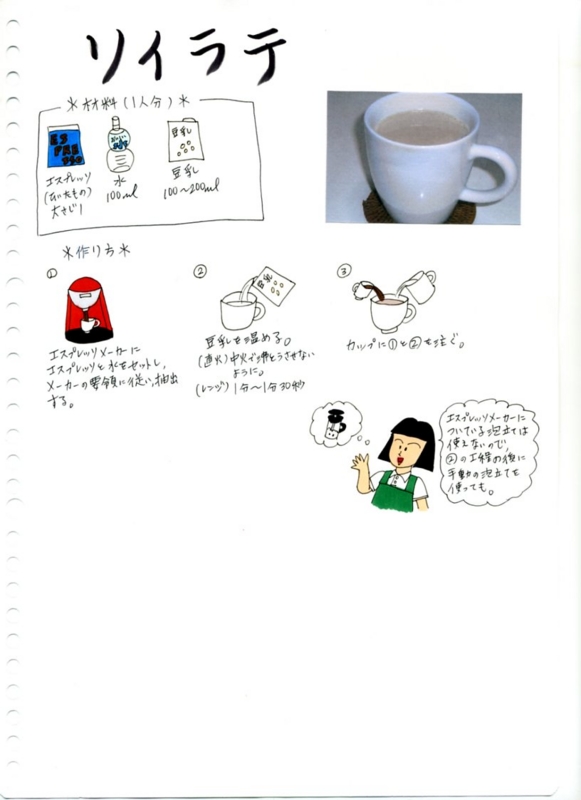 ソイラテ
*材料(1人分)*
ES
PRE
SSO
豆乳
エスプレッソ
(ひいたもの)
大さじ1
水
100ml
豆乳
100~200ml
*作り方*
①
エスプレッソメーカーに
エスプレッソと水をセットし、
メーカーの要領に従い、抽出
する。
②
豆乳を温める。
(直火)中火で沸とうさせない
ように。
(レンジ)1分~1分30秒
③
カップに①と②を注ぐ。
エスプレッソメーカーに
ついている泡立ては
使えないので、
②の工程の後に
手動の泡立てを
使っても。